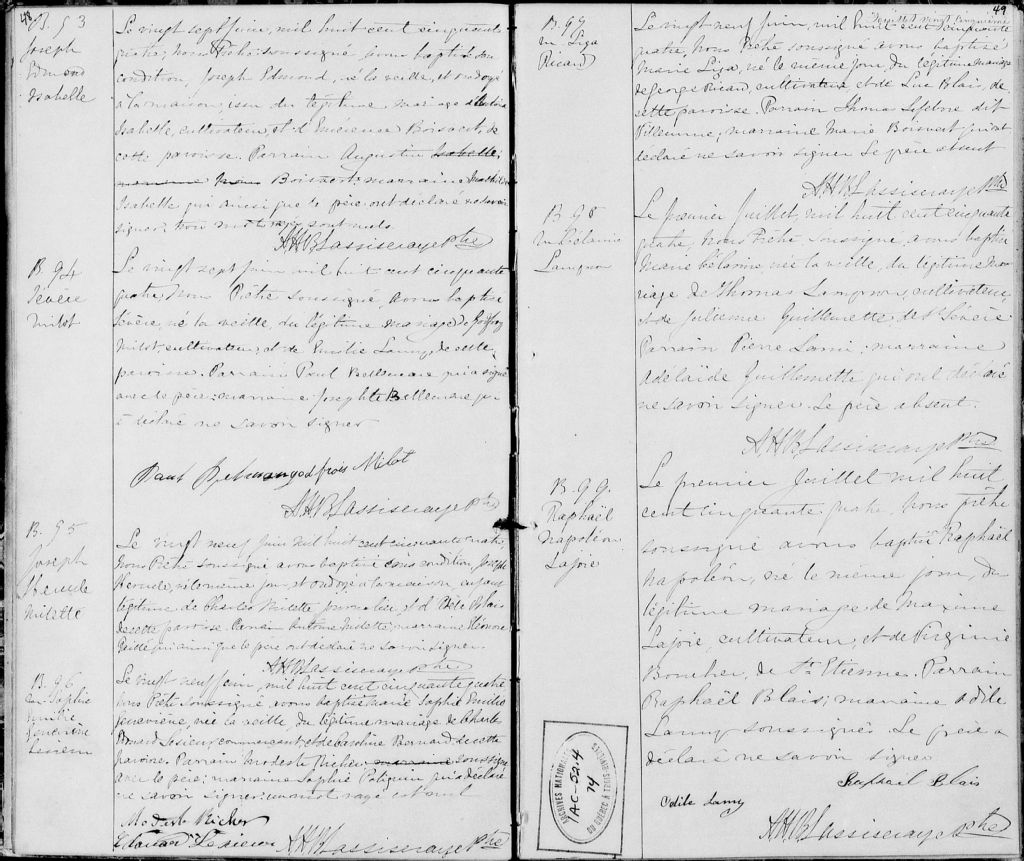 48
B. 93
Joseph
Edmond
Isabelle
Le vingt sept Juin, mil huit cent cinquante
quatre, Nous Prêtre soussigné avons baptisé sous
condition, Joseph Edmond, né la veille, et ondoyé
à la maison, issu du légitime mariage
Isabelle, cultivateur, et d' Boisvert, de
cette paroisse. Parrain Augustin Isabelle,
Boisvert; marraine Mathilde
Isabelle qui ainsi que le père ont déclaré ne savoir
signer. trois mots rayés sont nuls.
AHBLassiseraye Ptre
B. 94
Sévère
Milot
Le vingt sept Juin mil huit cent cinquante
quatre, Nous Prêtre soussigné avons baptisé
Sévère, né la veille, du légitime mariage de Godfroy
Milot, cultivateur, et de Emilie Lamy, de cette
paroisse. Parrain Paul Bellemare qui a signé
avec le père; marraine Josephte Bellemare qui
a déclaré ne savoir signer
Paul godfrois Milot
AHBLassiseraye Ptre
B. 95
Joseph
Hercule
Milette
Le vingt neuf Juin mil huit cent cinquante quatre,
Nous Prêtre soussigné avons baptisé sous condition, Joseph
Hercule, né le même jour, et ondoyé à la maison enfant
légitime de Charles Milette et d' Blais
de cette paroisse. Parrain Antoine Milette, marraine Héonore
qui ainsi que le père ont déclaré ne savoir signer.
AHBLassiseraye Ptre
B. 96
M. Sophie
Emilie
Geneviève
Lesieur
Le vingt neuf Juin, mil huit cent cinquante quatre
Nous Prêtre soussigné, avons baptisé Marie Sophie Emilie
Geneviève, née la veille, du légitime mariage de Charles
Edouard Lesieur, commerçant, et de Caroline Bernard, de cette
paroisse. Parrain Modeste Richer soussigné
avec le père; marraine Sophie Potiquin qui a déclaré
ne savoir signer. un mot rayé est nul
Modeste Richer
Edouard Lesieur AHBLassiseraye Ptre
49
B. 97
M. Liza
Ricard
Juillet vingt cinquième
Le vingt neuf Juin, mil huit cent cinquante
quatre, Nous Prêtre soussigné avons baptisé
Marie Liza, né le même jour, du légitime mariage
de George Ricard, cultivateur, et de Luce Blais, de
cette paroisse. Parrain Thomas Lefebvre dit
Villemure, marraine Marie Boisvert qui ont
déclaré ne savoir signer le père absent
AHBLassiseraye Ptre
B. 98
M. Hélaine
Lampron
Le premier Juillet, mil huit cent cinquante
quatre, Nous Prêtre soussigné avons baptisé
Marie Hélaine, née la veille, du légitime ma-
riage de Thomas Lampron, cultivateur,
et de Julienne Guillemette, de St Sévère
Parrain Pierre Lami, marraine
Adélaïde Guillemette qui ont déclaré
ne savoir signer. Le père absent.
AHBLassiseraye Ptre
B. 99.
Raphaël
Napoléon
Lajoie
Le premier Juillet mil huit
cent cinquante quatre, Nous prêtre
soussigné avons baptisé Raphaël
Napoléon, né le même jour, du
légitime mariage de Maxime
Lajoie, cultivateur, et de Virginie
Boucher, de St Etienne. Parrain
Raphaël Blais, marraine Odile
Lamy soussignés. Le père a
déclaré ne savoir signer
Raphael Blais
Odile Lamy
AHBLassiseraye Ptre
ARCHIVES NATIONALES
1AC-52.4
74
DU QUÉBEC À TROIS-RIVIÈRES